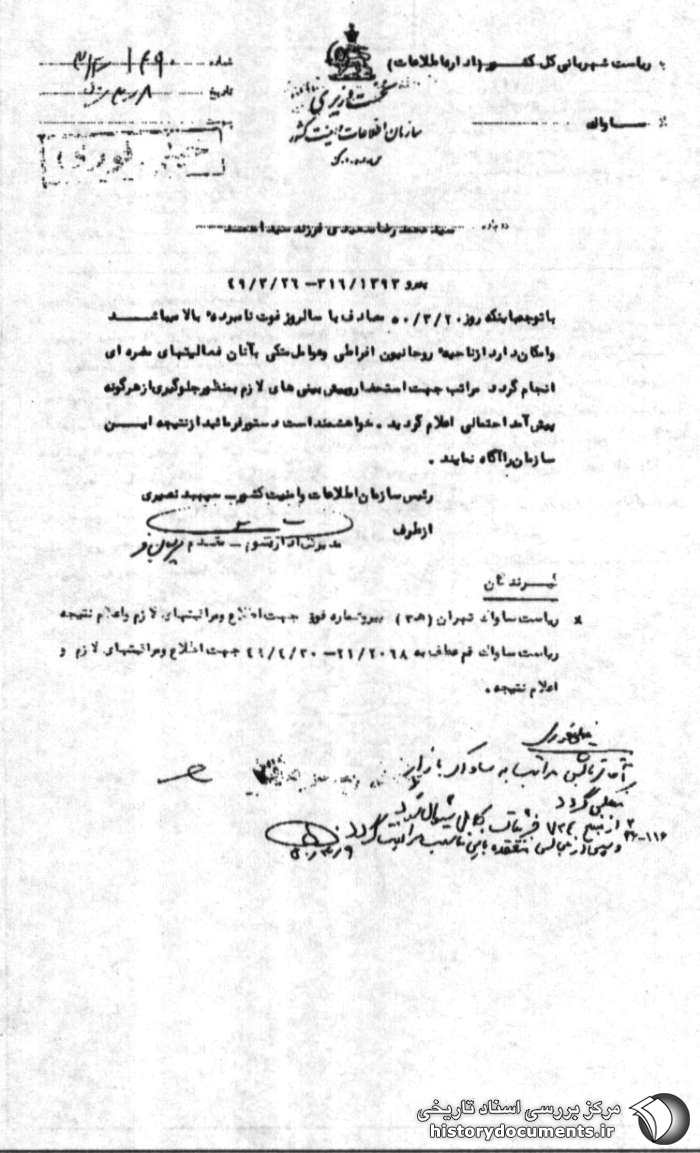 به ریاست شهربانی کل کشور (اداره اطلاعات)
شماره
تاریخ ۸ ر ۳ ر ۵۰
پیوست
نخست وزیری
سازمان اطلاعات و امنیت کشور
از ساواک
خیلی فوری
درباره سید محمد رضا سعیدی فرزند سید احمد
پیرو ۳۱۶/۱۳۹۳ – ۴۹/۳/۲۶
با توجه باینکه روز ۵۰/۳/۲۰ مصادف با سالروز فوت نامبرده بالا میباشد
و امکان دارد از ناحیه روحانیون افراطی و عوامل متکی بآنان فعالیتهای مضره ای
انجام گردد مراتب جهت استحضار و پیش بینی های لازم بمنظور جلوگیری از هرگونه
پیش آمد احتمالی اعلام گردید . خواهشمند است دستور فرمائید از نتیجه ایــن
سازمان را آگاه نمایند .
رئیس سازمان اطلاعات و امنیت کشور – سپهبد نصیری
از طرف
مدیریت اداره کل سوم – مقدم
گیرندگان
× ریاست ساواک تهران (۳ه‍) پیرو شماره فوق جهت اطلاع و مراقبتهای لازم و اعلام نتیجه
ریاست ساواک قم عطف به ۲۱/۲۰۶۸ – جهت اطلاع و مراقبتهای لازم و
اعلام نتیجه .
خیلی فوری
مراتب به ساواک بازار
منعکس گردد
از منبع ۷۲۴
۱۱۶–۳۶
۹ ر ۳ ر ۵۰
مرکز بررسی اسناد تاریخی
historydocuments.ir